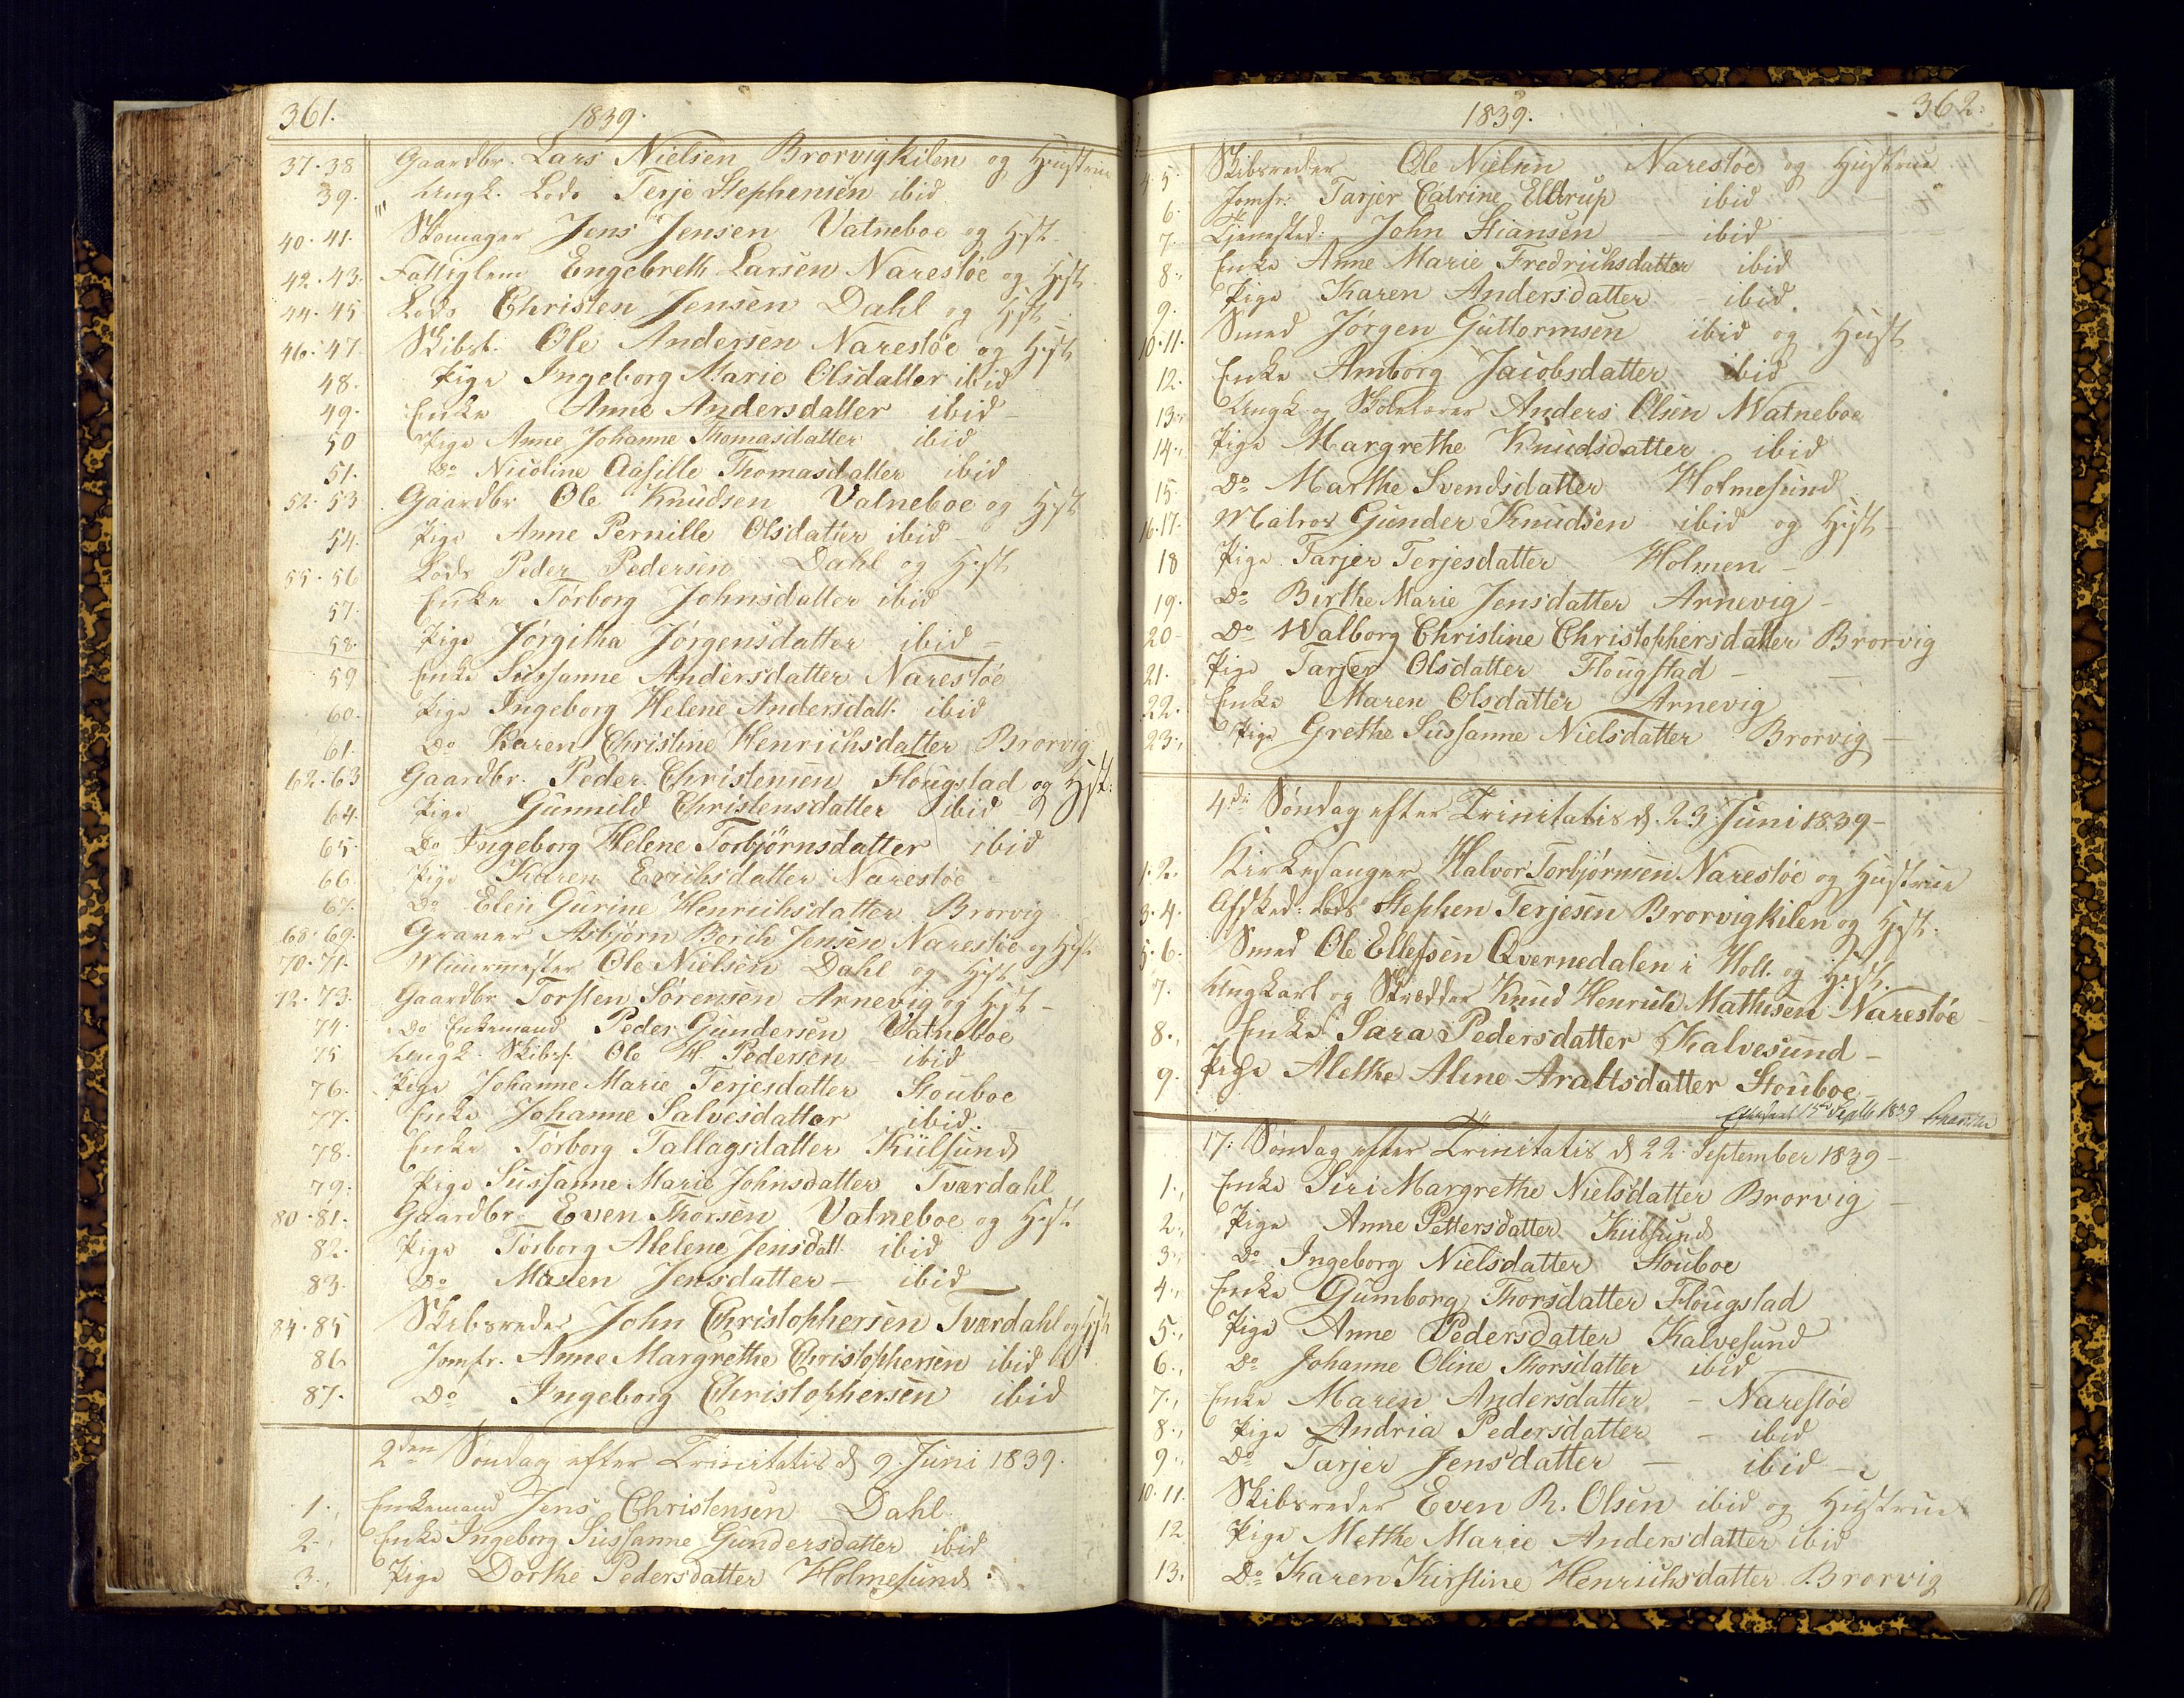 361. 1839.
37.38 Gaardbr. Lars Nielsen Brorvigkilen og Hustrue
39. Ungk. Lods Terje Stephensen ibid
40.41. Skomager Jens Jensen Vatneboe og Hst.
42.43. Fattiglem Engebreth Larsen Narestøe og Hst.
44.45 Lods Christen Jensen Dahl og Hst
46.47 Skibst. Ole Andersen Narestøe og Hst
48. Pige Ingeborg Marie Olsdatter ibid
49. Enke Anne Andersdatter ibid
50 Pige Anne Johanne Thomasdatter ibid
51. Do Nicoline Thomasdatter ibid
52.53 Gaardbr Ole Knudsen Vatneboe og Hst
54. Pige Anne Pernille Olsdatter ibid
55.56 Lods Peder Pedersen Dahl og Hst
57. Enke Torborg Johnsdatter ibid
58. Pige Jørgitha Jørgensdatter ibid
59 Enke Sussanne Andersdatter Narestøe
60. Pige Ingeborg Helene Andersdatt. ibid
61. Do Karen Christine Henrichsdatter Brorvig
62.63 Gaardbr. Peder Christensen Flougstad og Hst:
64. Pige Gunnild Christensdatter ibid
65. Do Ingeborg Helene Torbjørnsdatter ibid
66. Pige Karen Erichsdatter Narestøe
67. Do Elen Gurine Henrichsdatter Brorvig
68.69. Graver Asbjørn Berih Jensen Narestøe og Hst
70.71. Muurmester Ole Nielsen Dahl og Hst
72.73. Gaardbr Torsten Sørensen Arnevig og Hst
74. Do Enkemand Peder Gundersen Vatneboe
75 Ungk. Skibsf. Ole H. Pedersen ibid
76. Pige Johanne Marie Terjesdatter Stouboe
77. Enke Johanne Salvesdatter ibid.
78. Enke Torborg Tallagsdatter Kiilsund
79. Pige Sussanne Marie Johnsdatter Tværdahl
80.81. Gaardbr. Even Thorsen Vatneboe og Hst
82. Pige Torborg Alelene Jensdatt. ibid
83. Do Maren Jensdatter ibid
84.85 Skibsreder John Christophersen Tværdahl og Hst
86 Jomfr. Anne Margrethe Christophersen ibid
87. Do Ingeborg Christophersen ibid
2den Søndag efter Trinitatis d 9. Juni 1839.
1., Enkemand Jens Christensen Dahl
2., Enke Ingeborg Sussanne Gundersdatter ibid
3., Pige Dorthe Pedersdatter Holmesund
1839. 362.
4.5 Skibsreder Ole Nielsen Narestøe og Hustrue
6. Jomfr. Tarjer Catrine Elltrup ibid
7. Tjenested: John Stiansen ibid
8., Enke Anne Marie Fredrichsdatter ibid
9. Pige Karen Andersdatter ibid.
10.11. Smed Jørgen Guttormsen ibid og Hust
12. Enke Amborg Jacobsdatter ibid
13., Ungk og Skolelærer Anders Olsen Watneboe
14., Pige Margrethe Knudsdatter ibid
15 Do Marthe Svendsdatter Holmesund
16.17. Matros Gunder Knudsen ibid og Hst
18 Pige Tarjer Terjesdatter Holmen
19. Do Birthe Marie Jensdatter Arnevig
20 Do Walborg Christine Christophersdatter Brorvig
21. Pige Tarjer Olsdatter Flougstad
22. Enke Maren Olsdatter Arnevig
23., Pige Grethe Sussanne Nielsdatter Brorvig
4de Søndag efter Trinitatis d. 23 Juni 1839
1.2. Kirkesanger Halvor Torbjørnsen Narestøe og Hustrue
3.4. Afsked: Lods Stephen Terjesen Brorvigkilen og Hst.
5.6. Smed Ole Ellefsen Qvernedalen i Holt. og Hst.
7. Ungkarl og Skrædder Knud Henrich Mathisen Narestøe
8., Enke Sara Pedersdatter Kalvesund
9. Pige Alethe Aline Araltsdatter Stouboe
15de Septb 1839
17: Søndag efter Trinitatis d 22 September 1839
1., Enke Siri Margrethe Nielsdatter Brorvig
2., Pige Anne Pettersdatter Kiilsund
3., Do Ingeborg Nielsdatter Stouboe
4., Enke Gumborg Thorsdatter Flougstad
5., Pige Anne Pedersdatter Kalvesund
6., Do Johanne Oline Thorsdatter ibid
7., Enke Maren Andersdatter Narestøe
8., Pige Andria Pedersdatter ibid
9., Do Tarjer Jensdatter ibid
10.11. Skibsreder Even R. Olsen ibid og Hustrue
12 Pige Methe Marie Andersdatter ibid
13. Do Karen Kirstine Henrichsdatter Brorvig